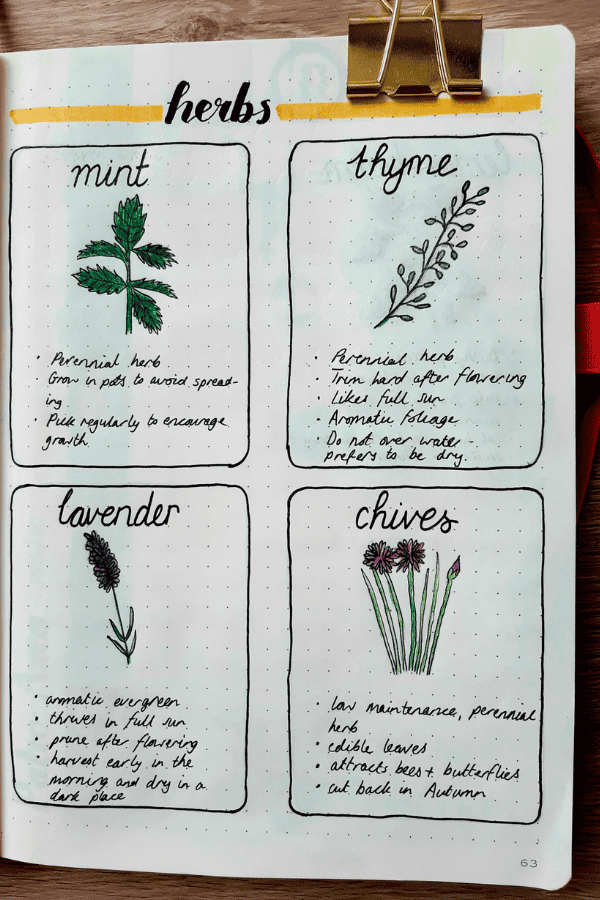 herbs
mint
• Perennial herb
• Grow in pots to avoid spread-
ing
• Pick regularly to encourage
growth.
thyme
• Perennial herb
• Trim hard after flowering
• Likes full sun
• Aromatic foliage
• Do not over water -
prefers to be dry.
lavender
• aromatic evergreen
• thrives in full sun
• prune after flowering
• harvest early in the
morning and dry in a
dark place
chives
• low maintenance, perennial
herb
• edible leaves
• attracts bees + butterflies
• cut back in Autumn
63